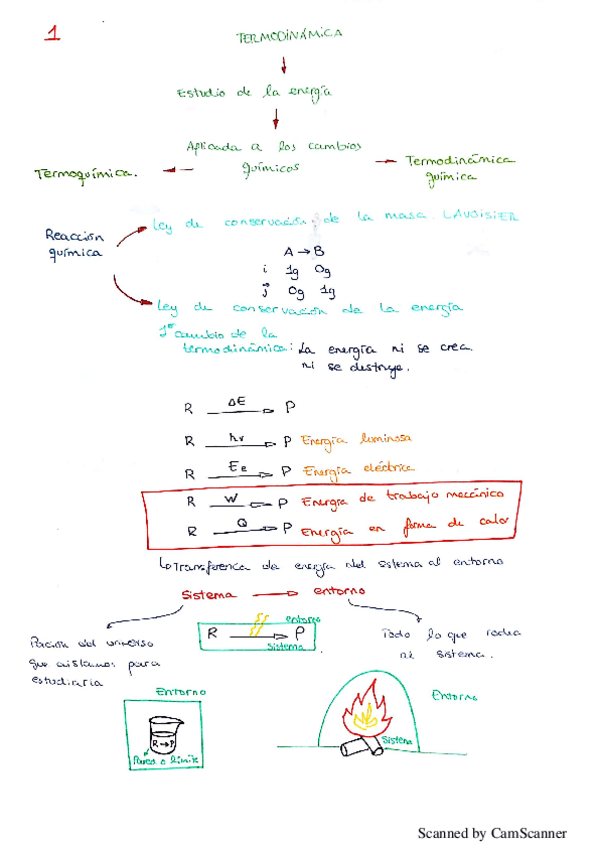 1
TERMODINÁMICA
Estudio de la energía
Aplicada a los cambios
químicos
Termoquímica.
Termodinámica
química
Ley de conservación de la masa. LAVOISIER
Reacción
química
A → B
i 1g 0g
j 0g 1g
Ley de conservación de la energía
1º cambio de la
termodinámica: La energía ni se crea
ni se destruye.
R ΔE → P
R hν → P Energía luminosa
R Ee → P Energía eléctrica
R W → P Energía de trabajo mecánico
R Q → P Energía en forma de calor
↳ Transferenca de energía del sistema al entorno
Sistema → entorno
entorno
R → P
Sistema
Porción del universo
que aislamos para
estudiarla
Todo lo que rodea
mi sistema.
Entorno
R → P
Pared o límite
Entorno
Sistema
Scanned by CamScanner